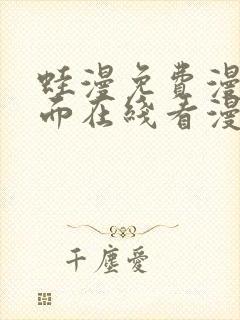 蛙漫免费漫
而在线看漫
千尘爱